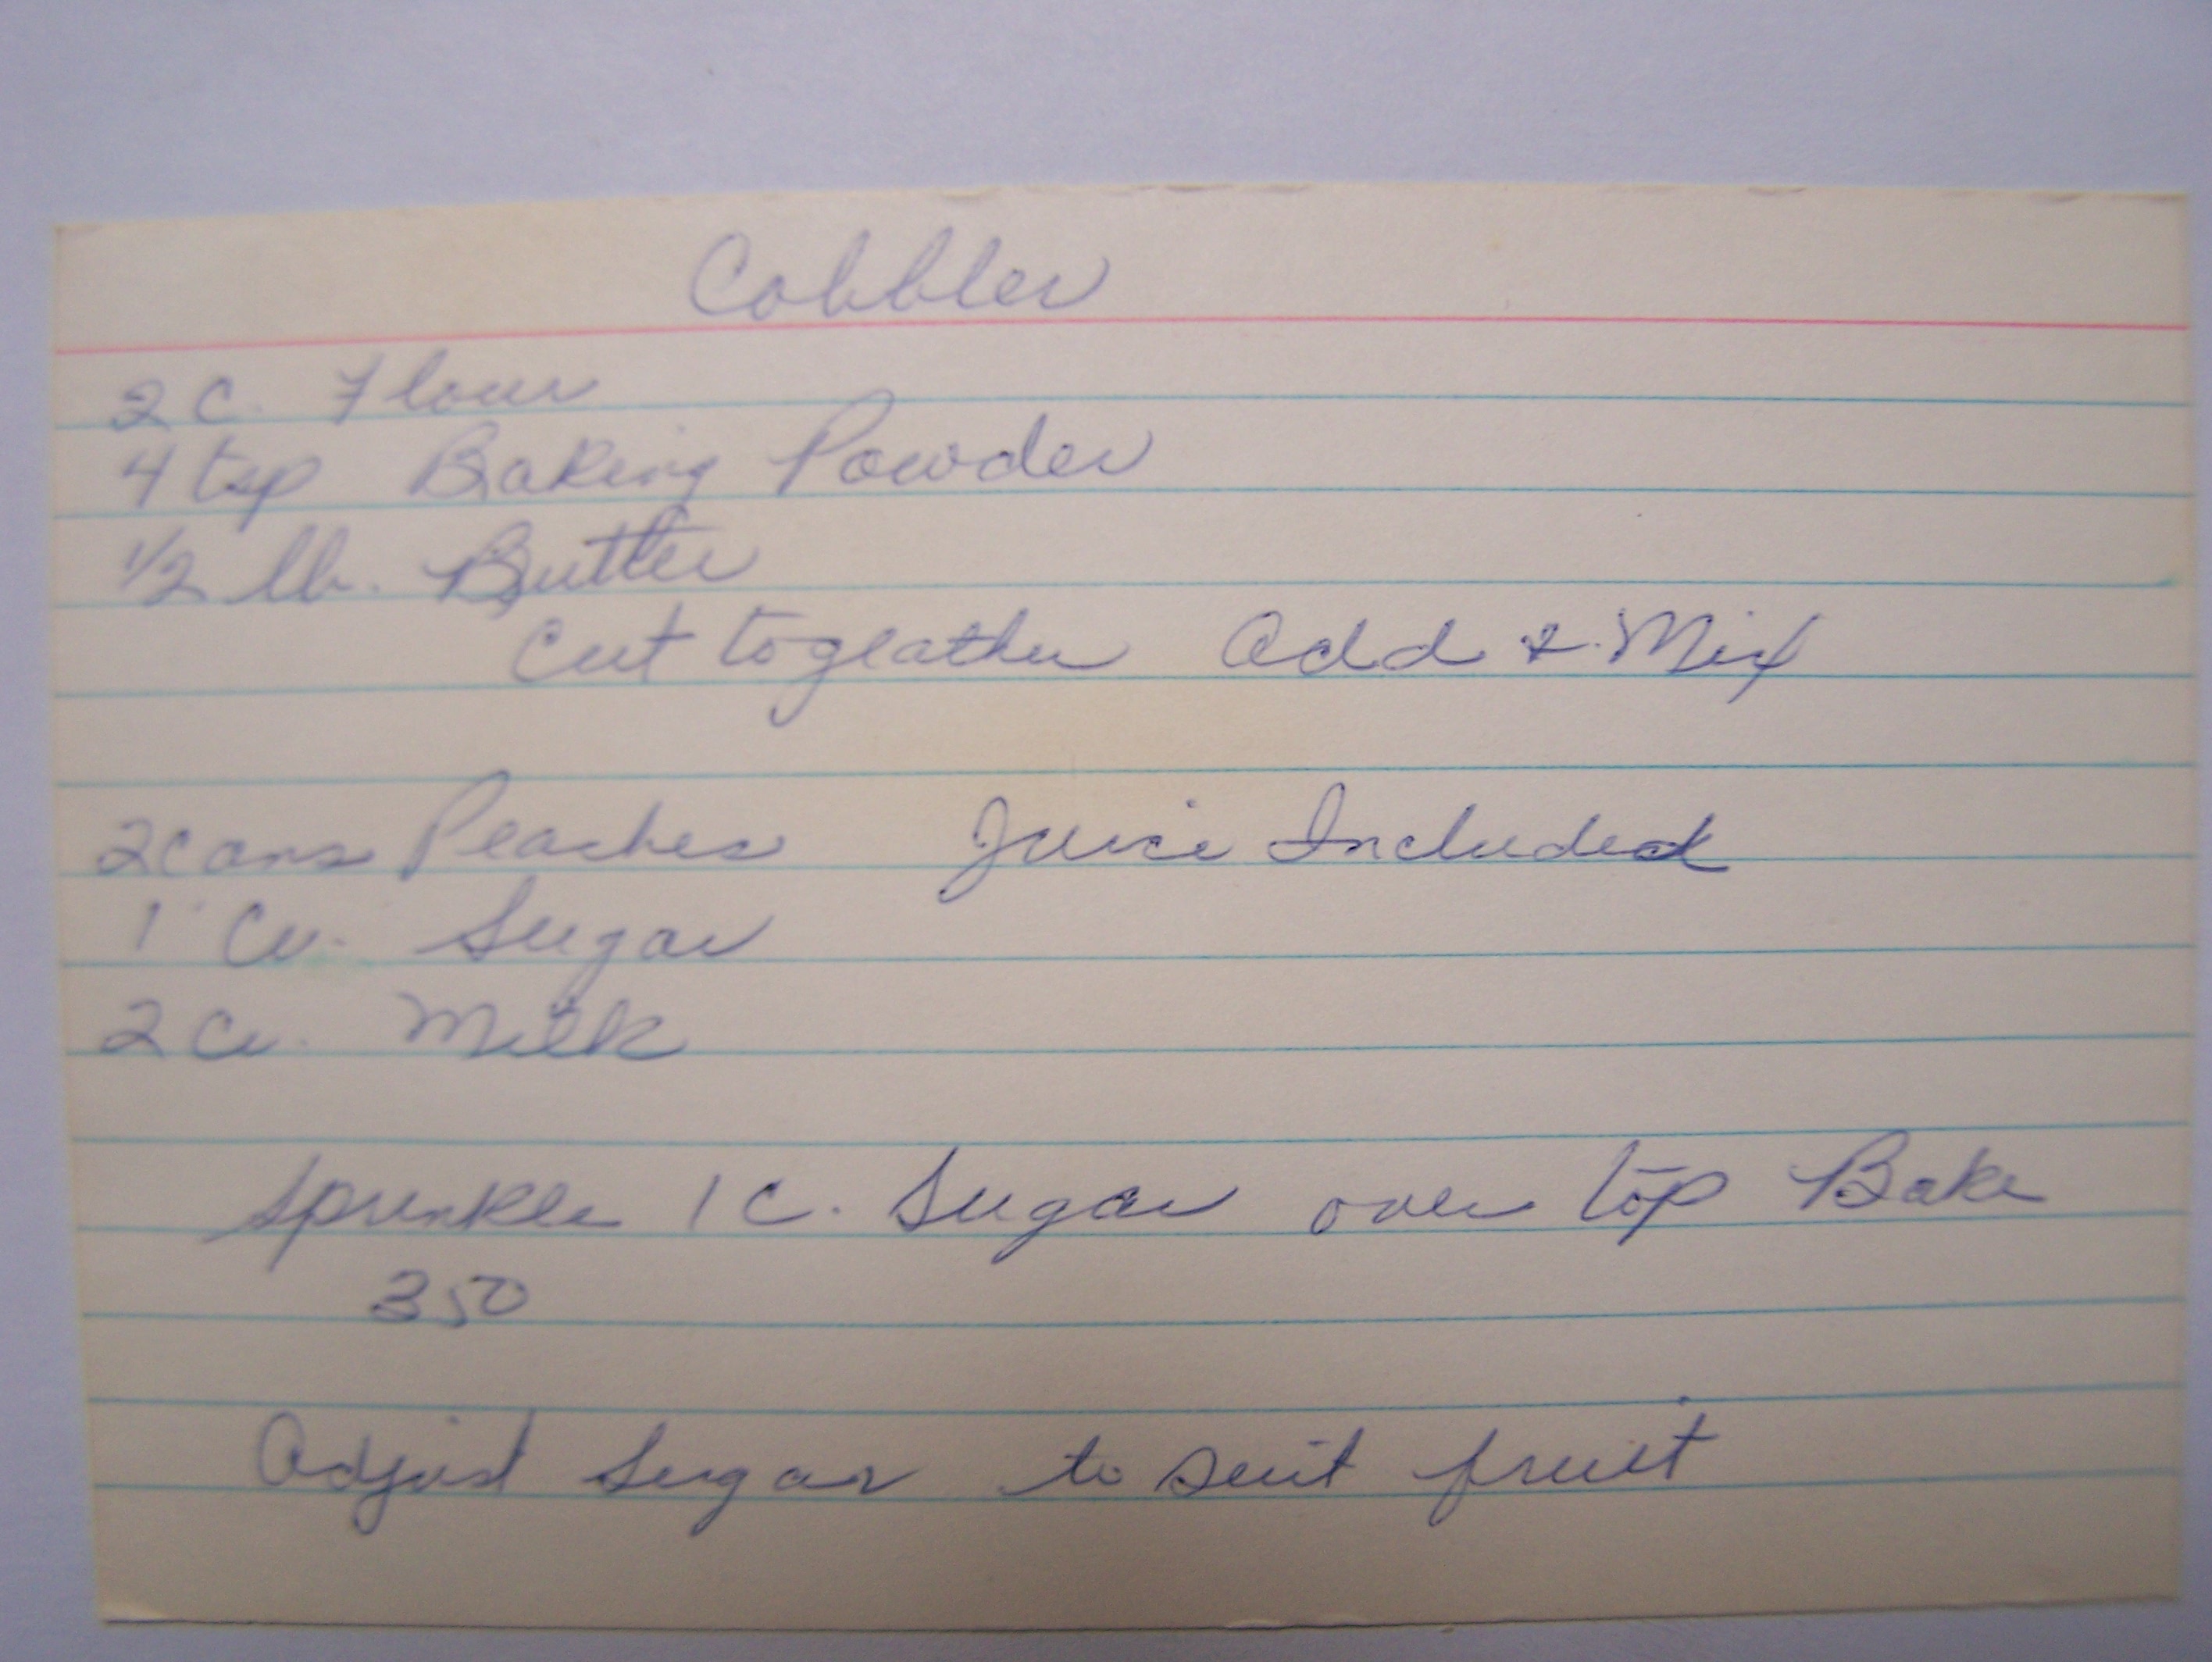 Cobbler
2 C. Flour
4 tsp Baking Powder
1/2 lb. Butter
Cut togeather Add & Mix
2 cans Peaches Juice Included
1 Cu. Sugar
2 Cu. Milk
Sprinkle 1 C. Sugar over top Bake
350
Adjust Sugar to suit fruit